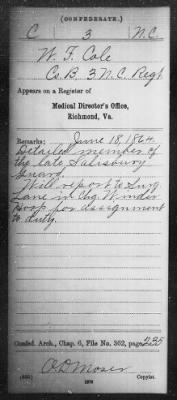 (CONFEDERATE.)
C 3 N.C.
W. F. Cole
Co. B, 3 N.C. Regt
Appears on a Register of
Medical Director's Office,
Richmond, Va.
Remarks: June 18, 1864
Detailed member of
the late Salisbury
Guard.
Will report to Surg
Lane in Chg Winder
Hosp for assignment
to duty.
Confed. Arch., Chap. 6, File No. 362, page 235
O D Moser
Copyist.